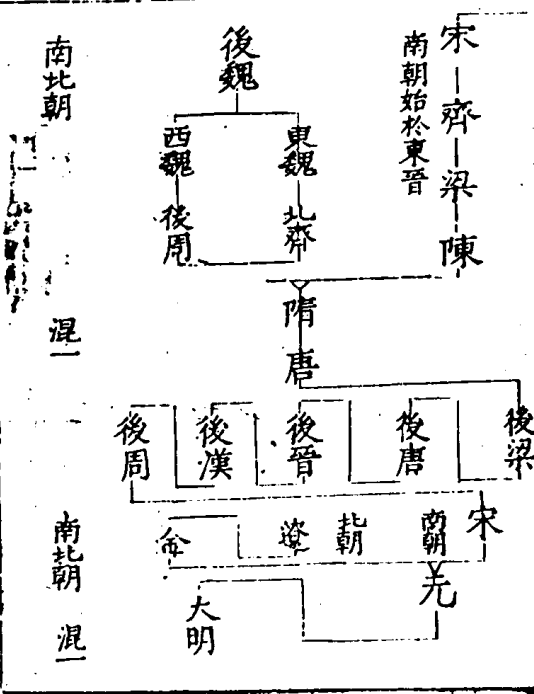 宋
齊
梁
陳
南朝始於東晉
後魏
東魏
北齊
西魏
後周
南北朝
混一
隋
唐
後梁
後唐
後晉
後漢
後周
宋
南朝
北朝
遼
金
元
大明
南北朝
混一